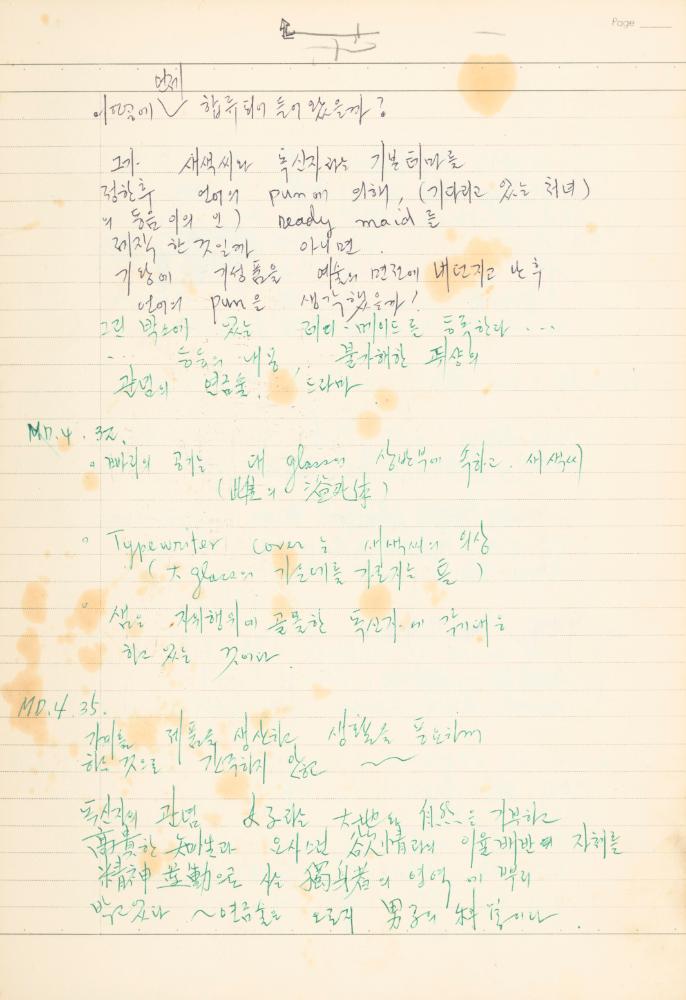 Page
언제
어떤 것에 합류되어 들어 왔을까?
그가 새색씨와 독신자라는 기본 테마를
정한후 언어의 pun에 의해, (기다리고 있는 처녀)
의 동음 이의 인) Ready maid를
제작 한 것일까 아니면.
기왕에 기성품을 예술의 면전에 내던지고 난 후
언어의 pun을 생각했을까!
그린 박스에 있는 레디·메이드를 등록한다 ...
.. 등등의 내용, 불가해한 뒤샹의
관념의 연금술. 드라마
MD.4.32.
◦ 빠리의 공기는 대 glass의 상반부에 속하고. 새색씨
( 의 )
◦ Typewriter cover는 새색씨의 의상
(大 glass의 가운데를 가로지르는 )
◦ 샘은 자위행위에 골몰한 독신자에 각기 대응
하고 있는 것이다.
MD.4.35.
제품을 생산하고 생활을 풍요하게
하는 것으로 간주하지 않고 ~
독신자의 관념 女子라는 大地와 自然을 거부하고
한 과 欲情과의 이율배반 자체를
精神 運動으로 삼는 獨身者의 영역에 뿌리
박고 있다 ~연금술은 오로지 男子의 이다.